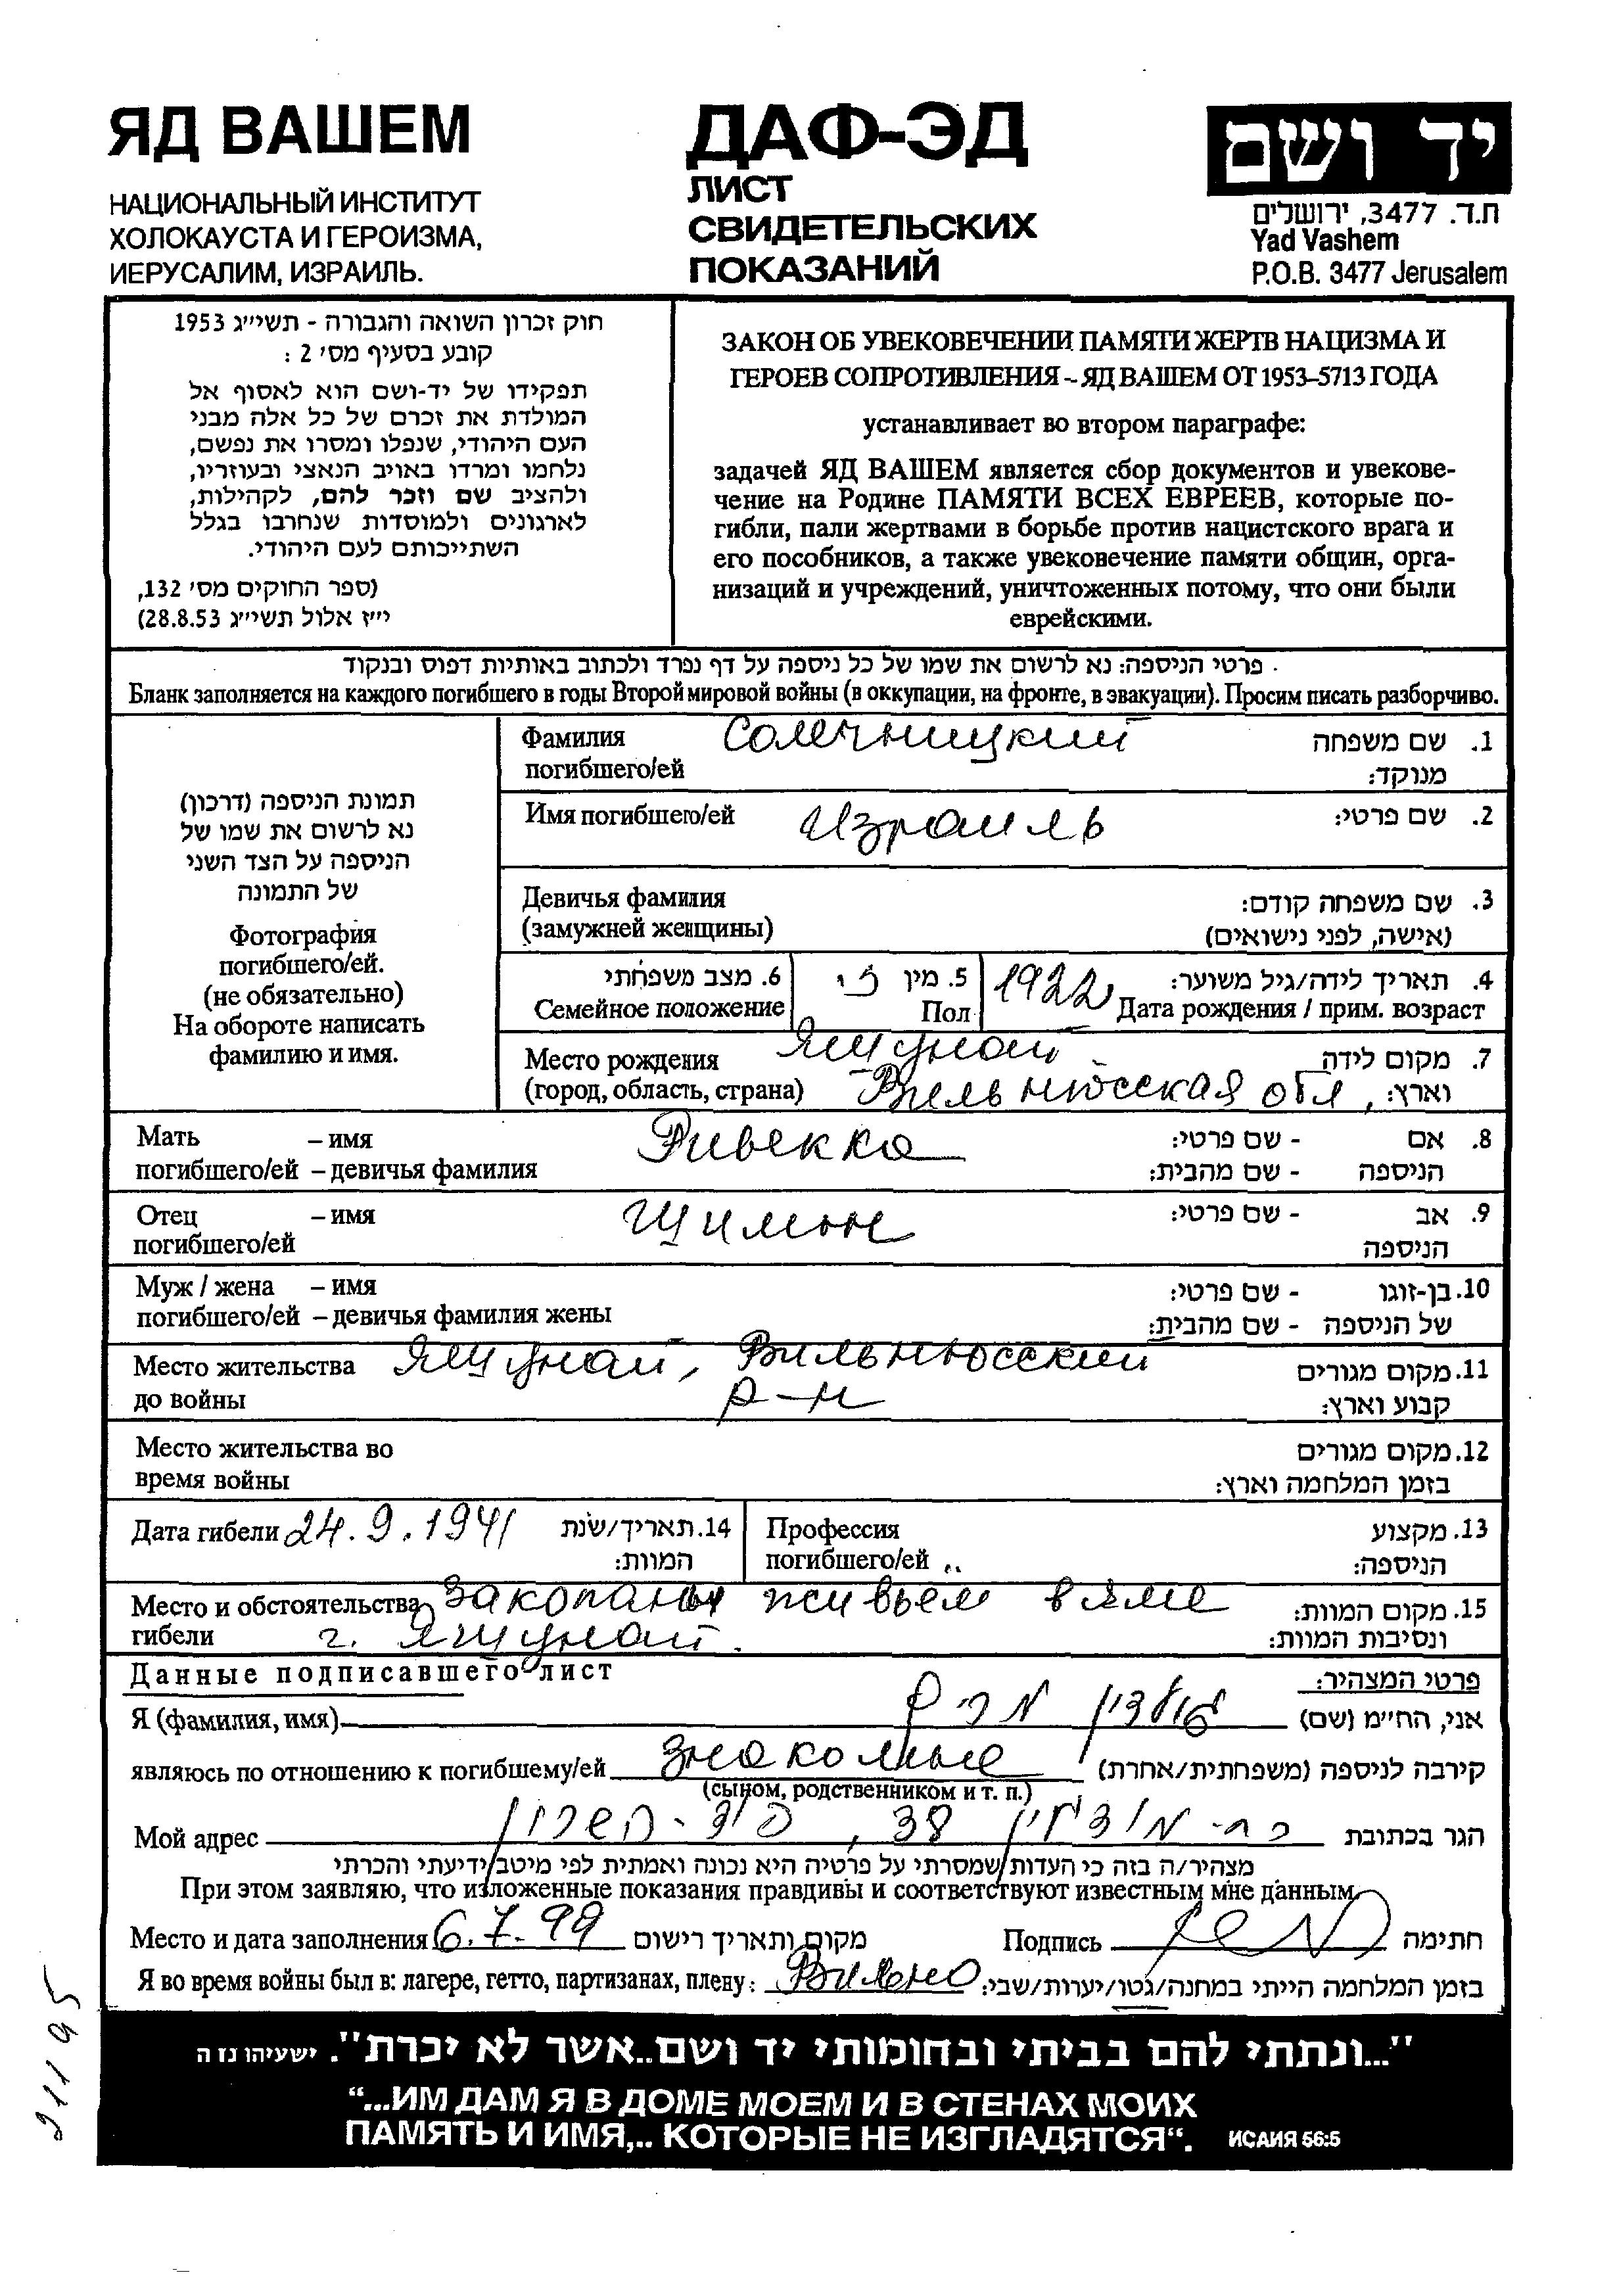 ЯД ВАШЕМ
НАЦИОНАЛЬНЫЙ ИНСТИТУТ
ХОЛОКАУСТА И ГЕРОИЗМА,
ИЕРУСАЛИМ, ИЗРАИЛЬ.
ДАФ-ЭД
ЛИСТ
СВИДЕТЕЛЬСКИХ
ПОКАЗАНИЙ
יד ושם
ת.ד. 3477, ירושלים
Yad Vashem
P.O.B. 3477 Jerusalem
חוק זכרון השואה והגבורה - תשי״ג 1953
קובע בסעיף מס׳ 2 :
תפקידו של יד-ושם הוא לאסוף אל
המולדת את זכרם של כל אלה מבני
העם היהודי, שנפלו ומסרו את נפשם,
נלחמו ומרדו באויב הנאצי ובעוזריו,
ולהציב שם וזכר להם, לקהילות,
לארגונים ולמוסדות שנחרבו בגלל
השתייכותם לעם היהודי.
(ספר החוקים מס׳ 132,
י״ז אלול תשי״ג 28.8.53)
ЗАКОН ОБ УВЕКОВЕЧЕНИИ ПАМЯТИ ЖЕРТВ НАЦИЗМА И
ГЕРОЕВ СОПРОТИВЛЕНИЯ – ЯД ВАШЕМ ОТ 1953–5713 ГОДА
устанавливает во втором параграфе:
задачей ЯД ВАШЕМ является сбор документов и увекове-
чение на Родине ПАМЯТИ ВСЕХ ЕВРЕЕВ, которые по-
гибли, пали жертвами в борьбе против нацистского врага и
его пособников, а также увековечение памяти общин, орга-
низаций и учреждений, уничтоженных потому, что они были
еврейскими.
פרטי הניספה: נא לרשום את שמו של כל ניספה על דף נפרד ולכתוב באותיות דפוס ובנקוד
Бланк заполняется на каждого погибшего в годы Второй мировой войны (в оккупации, на фронте, в эвакуации). Просим писать разборчиво.
תמונת הניספה (דרכון)
נא לרשום את שמו של
הניספה על הצד השני
של התמונה
Фотография
погибшего/ей.
(не обязательно)
На обороте написать
фамилию и имя.
Фамилия Солечницкий 1. שם משפחה
погибшего/ей מנוקד:
Имя погибшего/ей Израиль 2. שם פרטי:
Девичья фамилия 3. שם משפחה קודם:
(замужней женщины) (אישה, לפני נישואים)
6. מצב משפחתי 5. מין ז. 1922 4. תאריך לידה/גיל משוער:
Семейное положение Пол Дата рождения / прим. возраст
Место рождения Яшунай 7. מקום לידה
(город, область, страна) Вильнюсская обл, וארץ:
Мать – имя Ривекка 8. אם - שם פרטי:
погибшего/ей – девичья фамилия הניספה - שם מהבית:
Отец – имя Шимон 9. אב - שם פרטי:
погибшего/ей הניספה
Муж / жена – имя 10. בן-זוגו - שם פרטי:
погибшего/ей – девичья фамилия жены של הניספה - שם מהבית:
Место жительства Яшунай, Вильнюсский 11. מקום מגורים
до войны р-н קבוע וארץ:
Место жительства во 12. מקום מגורים
время войны בזמן המלחמה וארץ:
Дата гибели 24.9.1941 14. תאריך/שנת Профессия 13. מקצוע
המוות: погибшего/ей הניספה:
Место и обстоятельства закопаны живьем в яме 15. מקום המוות:
гибели г. Яшунай. ונסיבות המוות:
Данные подписавшего лист פרטי המצהיר:
Я (фамилия, имя) מרים אני, הח״מ (שם)
являюсь по отношению к погибшему/ей знакомые קירבה לניספה (משפחתית/אחרת)
(сыном, родственником и т. п.)
Мой адрес 38, הוד-השרון הגר בכתובת
מצהיר/ה בזה כי העדות שמסרתי על פרטיה היא נכונה ואמתית לפי מיטב ידיעתי והכרתי
При этом заявляю, что изложенные показания правдивы и соответствуют известным мне данным
Место и дата заполнения 6.7.99 מקום ותאריך רישום Подпись חתימה
Я во время войны был в: лагере, гетто, партизанах, плену: Вильно בזמן המלחמה הייתי במחנה/גטו/יערות/שבי:
"...ונתתי להם בביתי ובחומותי יד ושם..אשר לא יכרת". ישעיהו נז ה
“...ИМ ДАМ Я В ДОМЕ МОЕМ И В СТЕНАХ МОИХ
ПАМЯТЬ И ИМЯ,.. КОТОРЫЕ НЕ ИЗГЛАДЯТСЯ“. ИСАИЯ 56:5